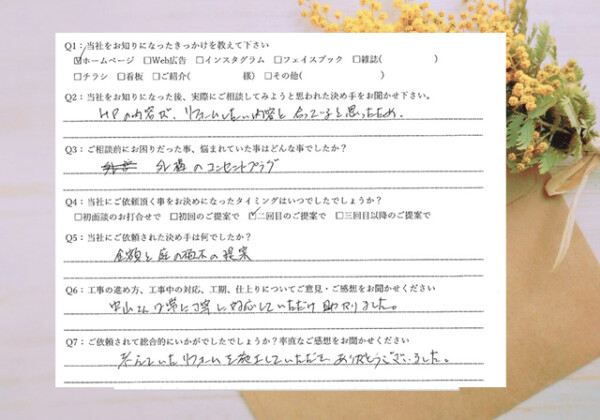 Q1：当社をお知りになったきっかけを教えて下さい
☑ホームページ □Web広告 □インスタグラム □フェイスブック □雑誌( )
□チラシ □看板 □ご紹介( 様) □その他( )
Q2：当社をお知りになった後、実際にご相談してみようと思われた決め手をお聞かせ下さい。
HPの内容が、リフォームしたい内容と合っていると思ったため。
Q3：ご相談前にお困りだった事、悩まれていた事はどんな事でしたか？
外構のコンセントプラグ
Q4：当社にご依頼頂く事をお決めになったタイミングはいつでしたでしょうか？
□初面談のお打合せで □初回のご提案で ☑二回目のご提案で □三回目以降のご提案で
Q5：当社にご依頼された決め手は何でしたか？
金額と庭の植木の提案
Q6：工事の進め方、工事中の対応、工期、仕上りについてご意見・ご感想をお聞かせください
中山さんは常に丁寧に対応していただけ助かりました。
Q7：ご依頼されて総合的にいかがでしたでしょうか？率直なご感想をお聞かせください
考えていたリフォームを施工していただきありがとうございました。